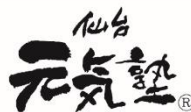 仙台
元気塾®